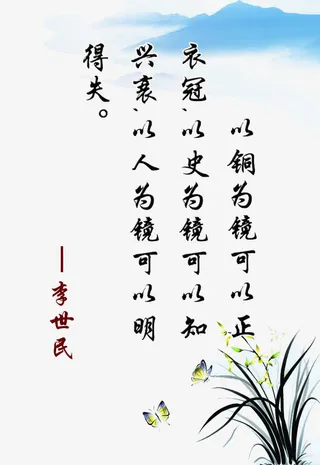 以铜为镜可以正
衣冠、以史为镜可以知
兴衰、以人为镜可以明
得失。
——李世民